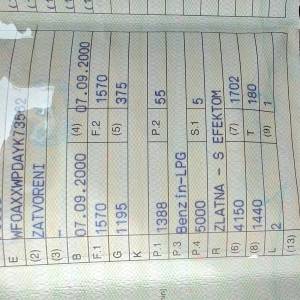 E WF0AXXWPDAYK73592
(2) ZATVORENI
(3) -
B 07.09.2000 (4) 07.09.2000
F.1 1570 F.2 1570
G 1195 (5) 375
K
P.1 1388 P.2 55
P.3 Benzin-LPG
P.4 5000 S.1 5
R ZLATNA - S EFEKTOM
(6) 4150 (7) 1702
(8) 1440 T 180
L 2 (9) 1
(13)